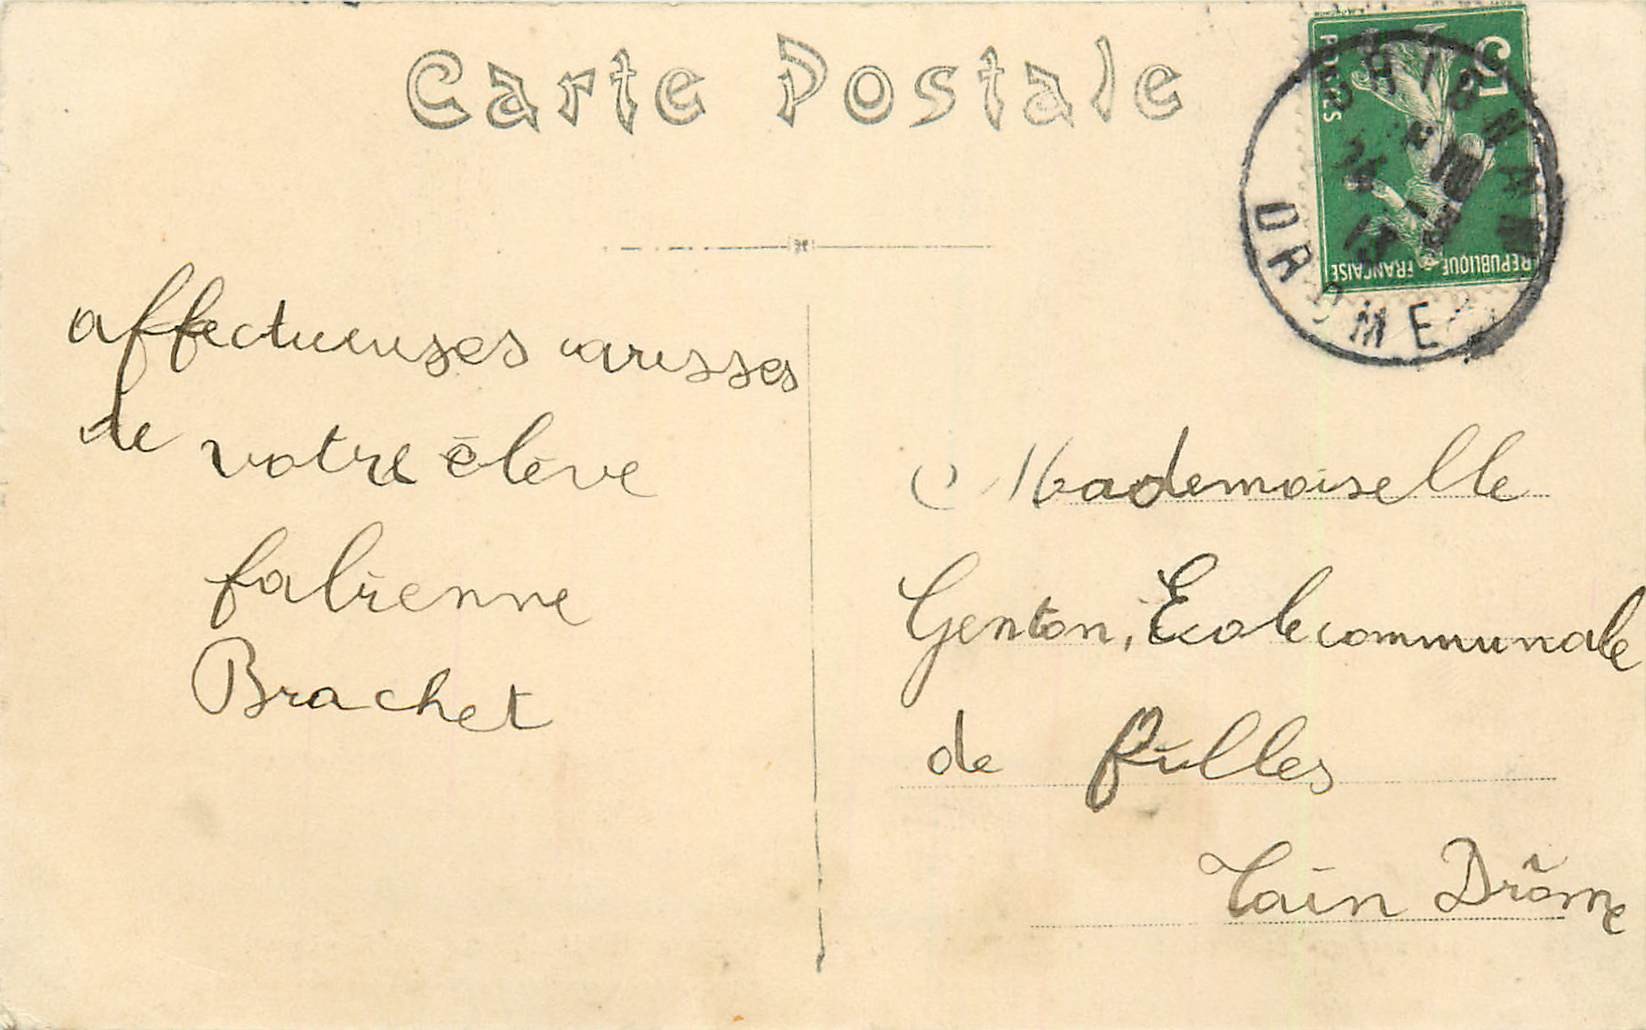 Carte Postale
5
POSTES
REPUBLIQUE FRANÇAISE
DROME
affectueuses caresses
de votre élève
fabienne
Brachet
Mademoiselle
Genton, Ecole communale
de filles
Tain Drôme